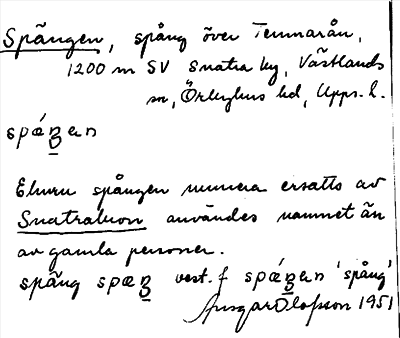 Spången, spång över Temnarån,
1200 m SV Snatra by, Västlands
sn, Örbyhus hd, Upps. l.
spǽŋen
Ehuru spången numera ersatts av
Snatrabron användes namnet än
av gamla personer.
spång spæŋ best. f spǽŋen 'spång'
Ansgar Olofsson 1951